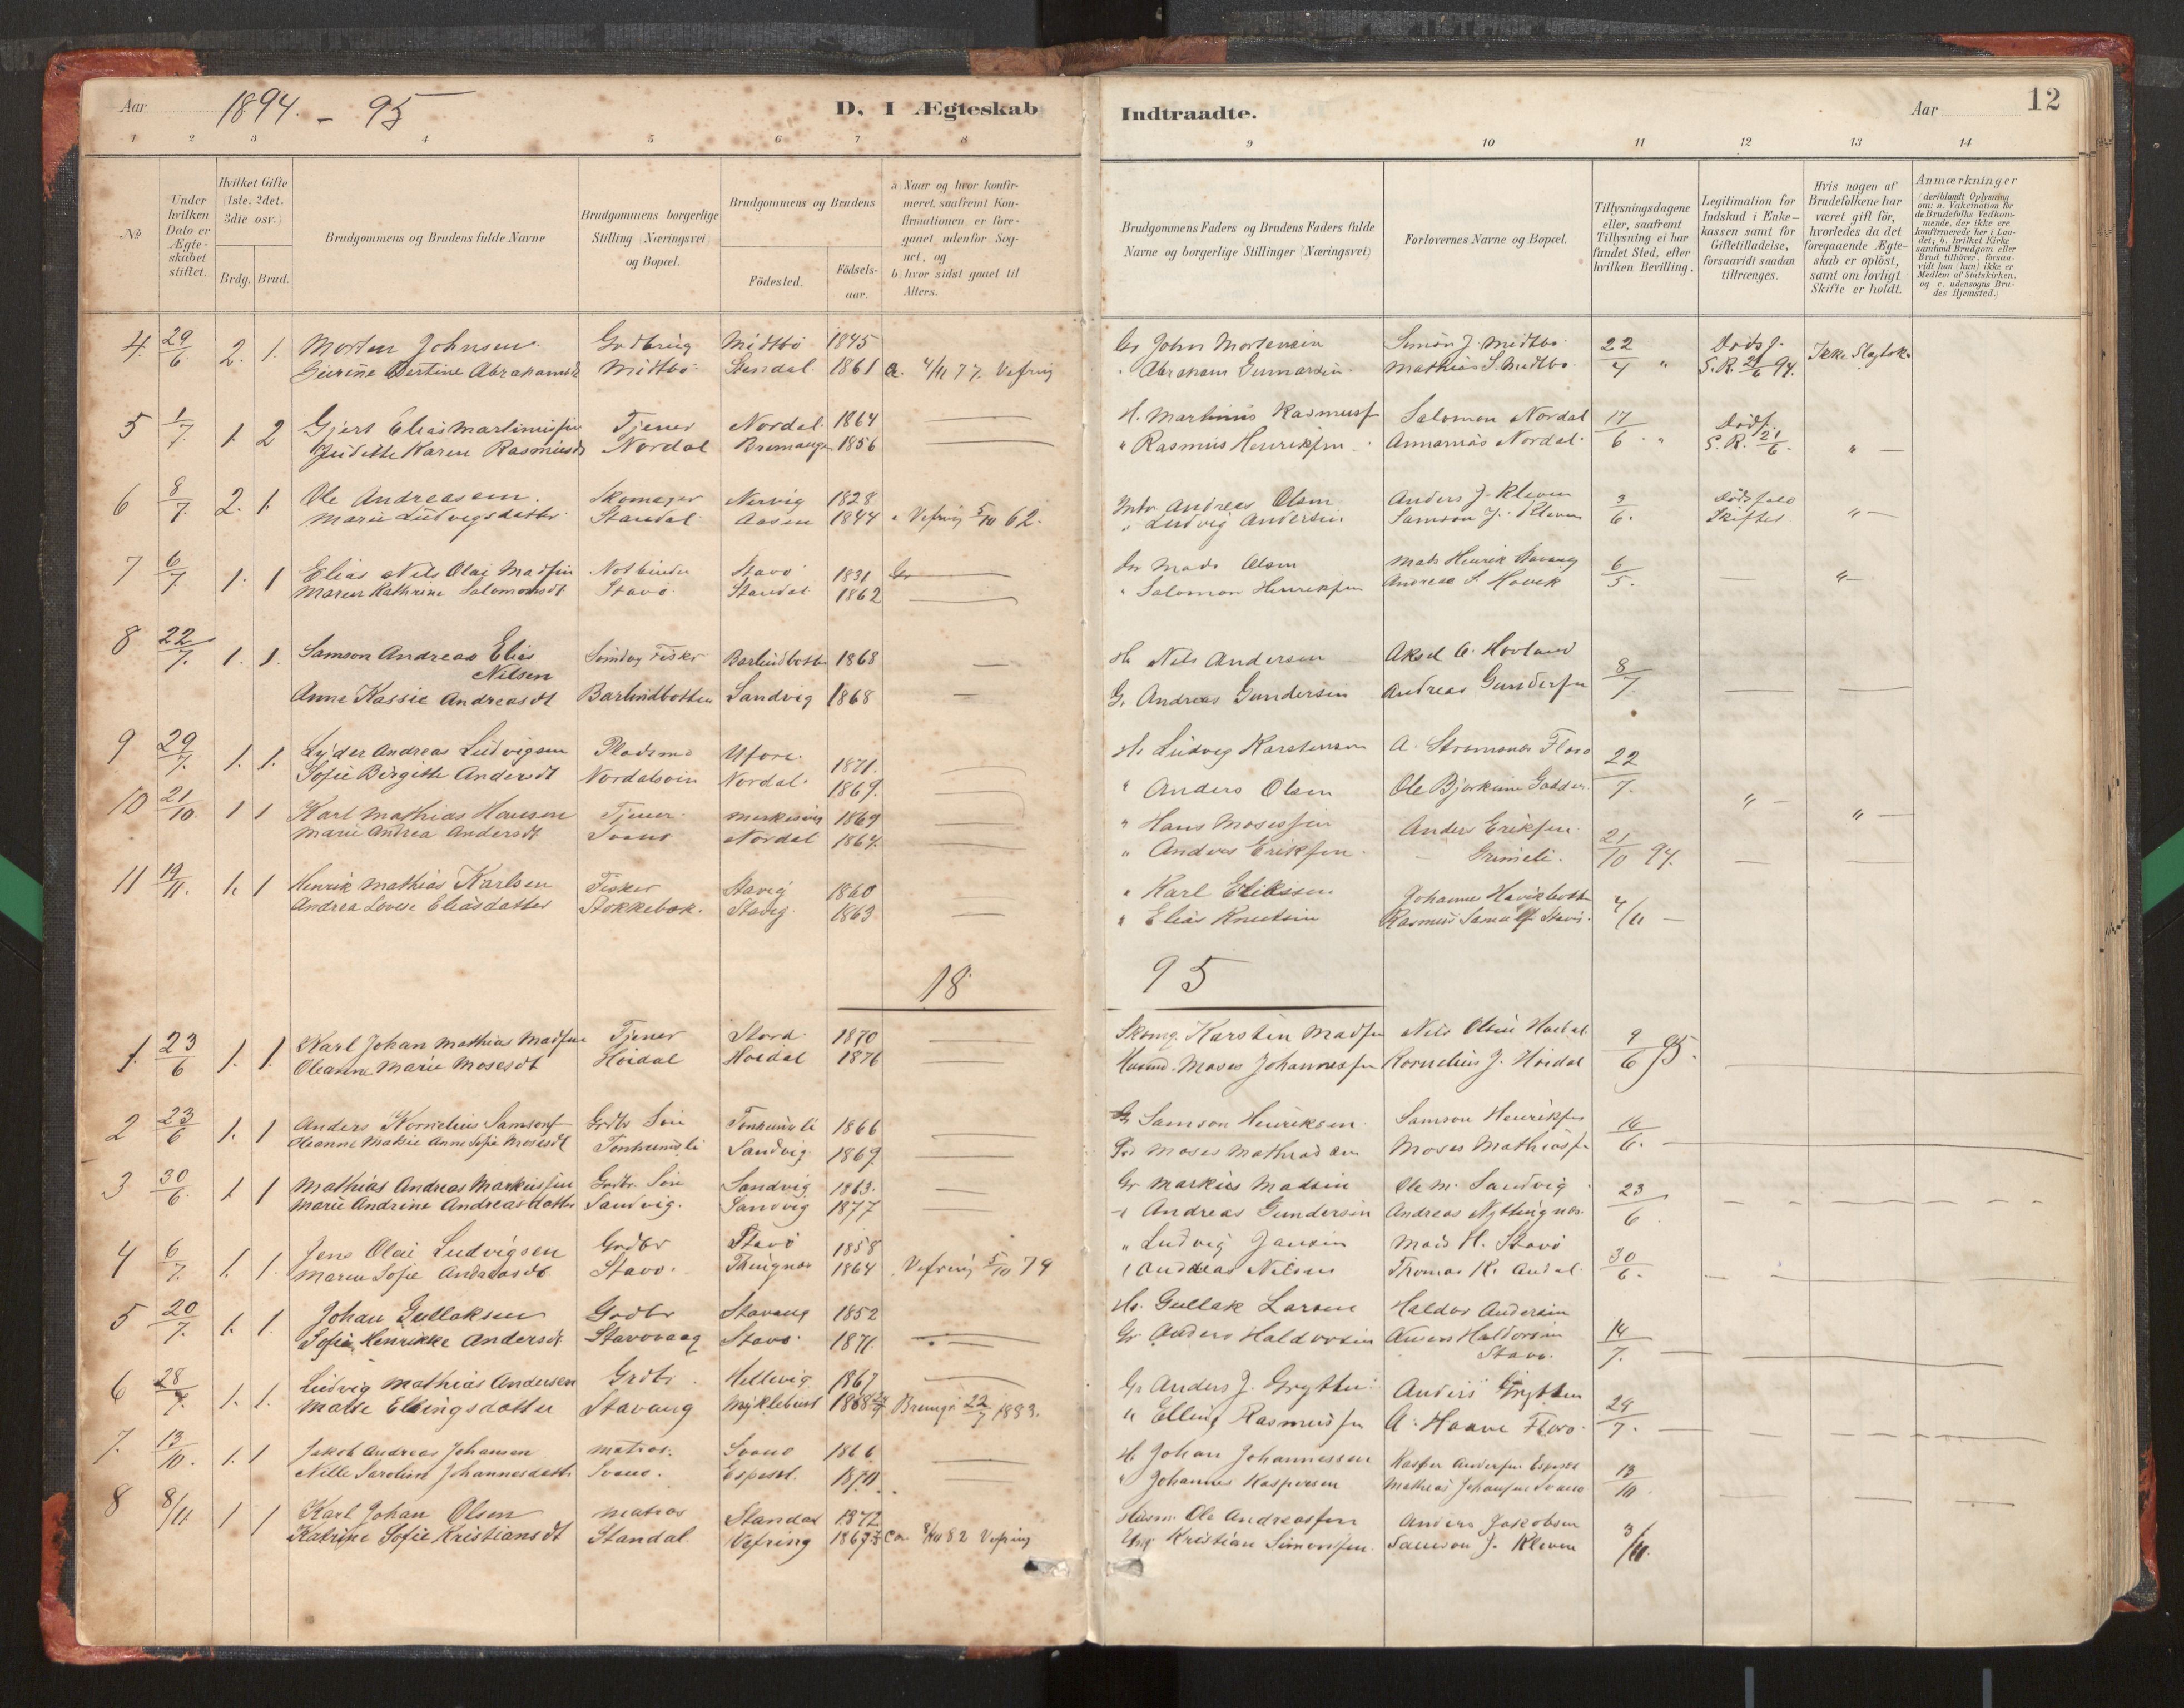 Aar 1894. - 95
D. I Ægteskab
Indtraadte.
Aar
12
1 2 3 4 5 6 7 8 9 10 11 12 13 14
No
Under hvilken Dato er Ægteskabet stiftet.
Hvilket Gifte (1ste, 2det, 3die osv.)
Brdg. Brud.
Brudgommens og Brudens fulde Navne
Brudgommens borgerlige Stilling (Næringsvei) og Bopæl.
Brudgommens og Brudens
Fødested.
Fødselsaar.
a) Naar og hvor konfirmeret, saafremt Konfirmationen er foregaaet udenfor Sognet, og
b) hvor sidst gaaet til Alters.
Brudgommens Faders og Brudens Faders fulde Navne og borgerlige Stillinger (Næringsvei)
Forlovernes Navne og Bopæl.
Tillysningsdagene eller, saafremt Tillysning ei har fundet Sted, efter hvilken Bevilling.
Legitimation for Indskud i Enkekassen samt for Giftetilladelse, forsaavidt saadan tiltrænges.
Hvis nogen af Brudefolkene har været gift før, hvorledes da det foregaaende Ægteskab er opløst, samt om lovligt Skifte er holdt.
Anmærkninger (deriblandt Oplysning om: a. Vakcination for de Brudefolks Vedkommende, der ikke ere konfirmerede her i Landet; b. hvilket Kirkesamfund Brudgom eller Brud tilhører, forsaavidt han (hun) ikke er Medlem af Statskirken, og c. udensogns Brudes Hjemsted.)
4. 29/6 2. 1. Morten Johnsen Grdbrug Midtbø 1845 John Mortensen Simon J. Midtbø 22/4 Dødsf.
Bertine Abrahamsd Midtbø Standal 1861 a. 4/11 77. Vefring Abraham Gunnarsen Mathias S. Midtbø S. R. 21/6 94. Ikke Slegtsk.
5 1/7 1. 2 Gjert Elias Martinusfen Tjener Nordal 1864 H. Martinus Rasmusf Salomon Nordal 17/6 Dødsf.
Judithe Karen Rasmusd Nordal Bremanger 1856 " Rasmus Henriksen Annanias Nordal S. R. 21/6. "
6 8/7. 2. 1. Ole Andreasen. Skomager Nervig 1828 Andreas Olsen Anders J. Kleven 3/6. Dødsfald
Marie Ludvigsdatter Standal Aasen 1844 Vefring 5/10 62. " Ludvig Andersen Samson J. Kleven Skiftet "
7 6/7 1. 1 Elias Nils Olai Madsen Notbinder Stavø 1831 Mads Olsen Mads Henrik Stavang 6/5.
Maren Kathrine Salomonsdt Stavø Standal 1862 " Salomon Henriksen Andreas S. Hovik "
8 22/7. 1. 1. Samson Andreas Elias Nilsen Fisker Barlindbotten 1868 H. Nils Andersen Aksel A. Hovland 8/7.
Anne Kassie Andreasdt Barlindbotten Sandvig 1868 G. Andreas Gundersen Andreas Gundersen
9 29/7. 1. 1. Lyder Andreas Ludvigsen Pladsmd Uføre 1871. H. Ludvig Karstensen A. Strømsnes Florø 22/7.
Sofie Birgitte Andersdt Nordalsvin Nordal 1869. " Anders Olsen Ole Bjørkum
10 21/10. 1 1 Karl Mathias Hansen Tjener 1869 " Hans Mosessen Anders Eriksen 21/10 94.
Marie Andrea Andersdt Svanø Nordal 1864. " Anders Eriksen Grimeli.
11 19/11. 1. 1 Henrik Mathias Karlsen Fisker Stavig 1860 " Karl Eliassen Johannes 4/11
Andrea Lovise Eliasdatter Stokkebæk. Stavig 1863 " Elias Knutsen Rasmus
18 95
1. 23/6 1. 1. Karl Johan Mathias Madsen Tjener Stord 1870 Skomg. Karsten Madsen Nils Olsen Hoidal 9/6 95.
Oleanne Marie Mosesdt Hoidal Hoidal 1876 Husmd. Moses Johannessen Kornelius J. Hoidal
2 23/6 1. 1 Anders Kornelius Samsonf Grdbr Søn Tonheimsli 1866 Samson Henriksen Samson Henriksen 16/6.
Oleanne Matsie Anne Sofie Mosesdt Tonheimsli Sandvig 1869 Moses Mathiasen Moses Mathiasfn
3 30/6. 1. 1 Mathias Andreas Markusfen Grdbr. Søn Sandvig 1863. Gr Markus Madsen Ole M. Sandvig 23/6
Marie Andrine Andreasdatter Sandvig. Sandvig 1877 Andreas Gundersen Andreas Nyttingnes
4 6/7. 1. 1. Jens Olai Ludvigsen Grdbr Stavø 1858 " Ludvig Jansen Mads H. Stavø 30/6.
Maren Sofie Andreasdt Stavø. Tingnes 1864 Vefring 5/10 79 Andreas Nilsen Thomas K. Andal
5 20/7. 1. 1. Johan Gullaksen Grdbr Stavang 1852 H. Gullak Larsen Haldor Andersen 14/7.
Sofie Henrikke Andersdt Stavøvaag Stavø 1871. Gr Anders Haldorsen Anders Haldorsen Stavø.
6 28/7. 1. 1. Ludvig Mathias Andersen Grdbr. Hellevig 1867 Gr Anders J. Grytten Anders Grytten 29/7.
Matte Ellingsdatter Stavang Myklebust 1868 22/7 1883. " Elling Rasmusfen A. Haave Florø
7. 13/10. 1. 1 Jakob Andreas Johansen Matros. Svanø 1866 H. Johan Johannessen Kasper Andersen Espeset 13/10
Nille Sarolina Johannesdatt. Svanø. Espeset. 1870. " Johannes Kaspersen Mathias Johansen Svanø
8 8/11 1 1 Karl Johan Olsen Matros Standal 1872 Husm. Ole Andreasfen Anders Jakobsen 3/11.
Katrine Sofie Kristiansdt Standal. Vefring 1867 82 Vefring Kristian Simonsen. Samson J. Kleven